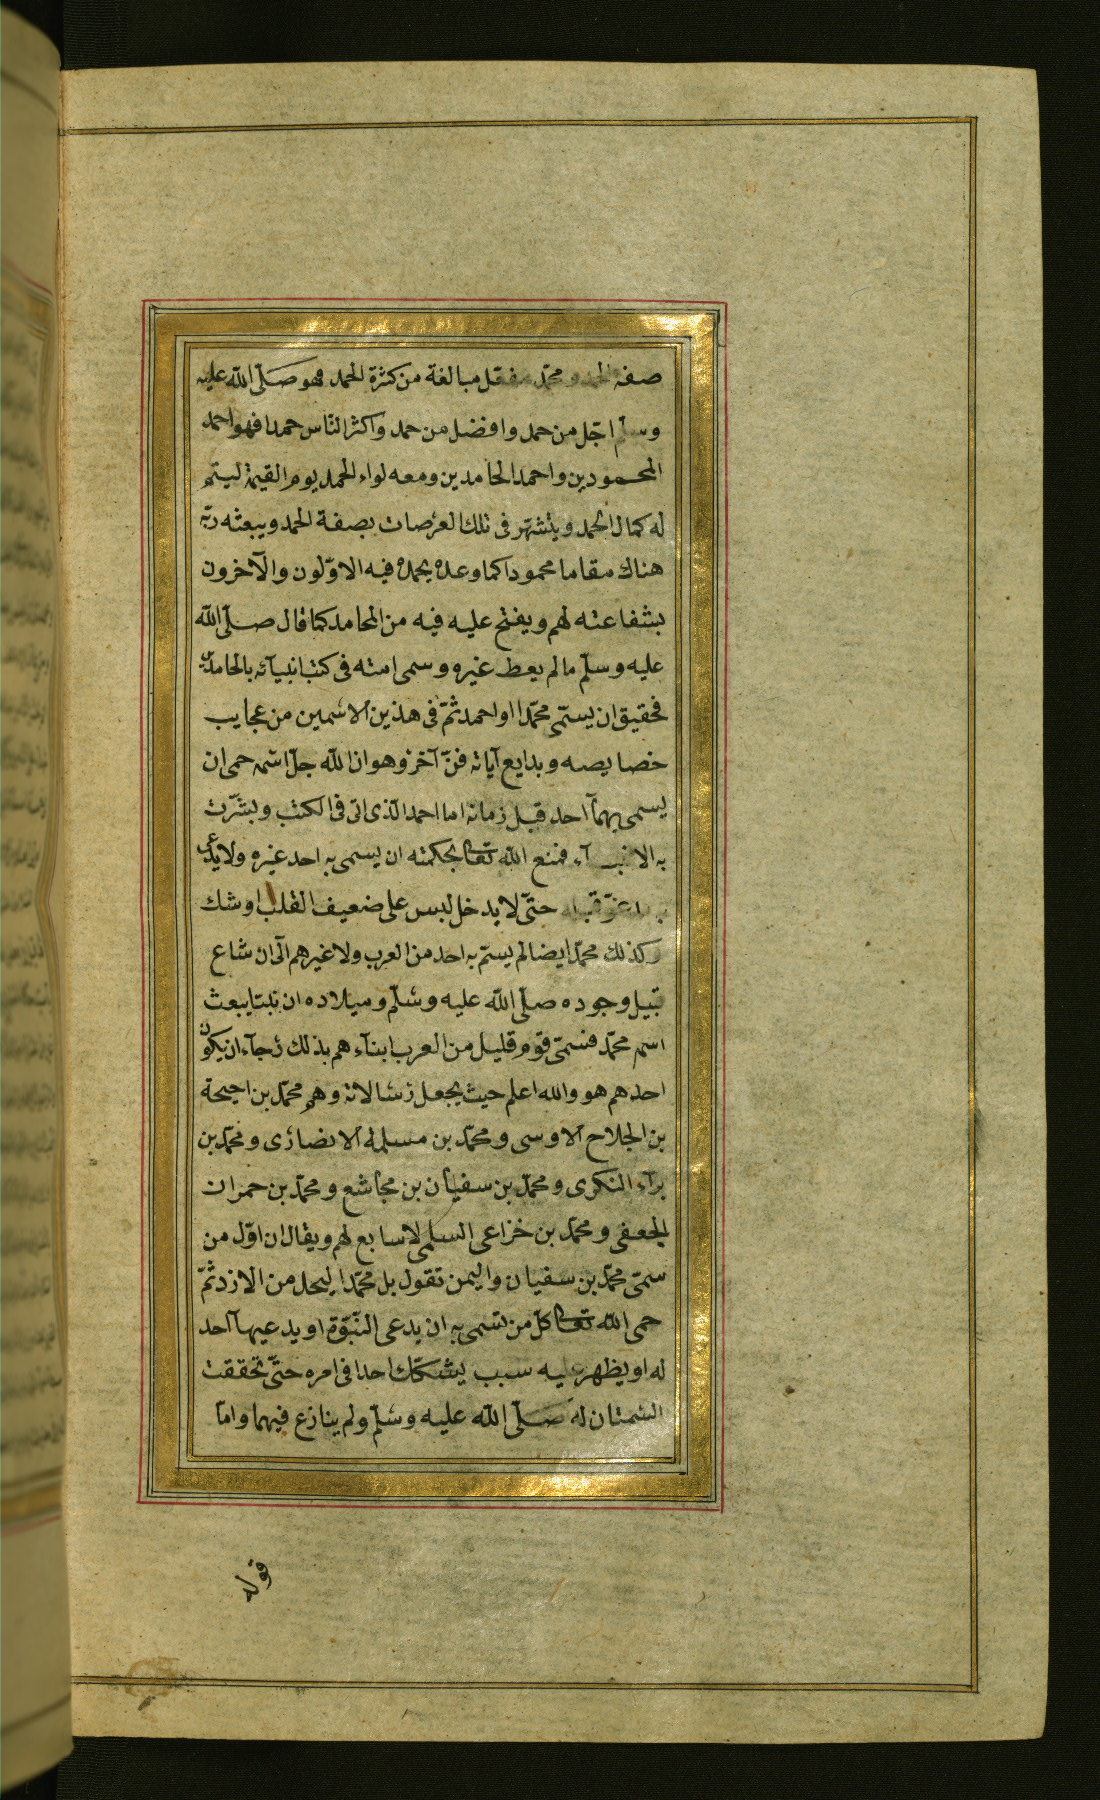 صفة الحمد ومحمّد مفعّل مبالغة من كثرة الحمد فهو صلّى اللّه عليه
وسلّم اجّل من حمد وافضل من حمد واكثر النّاس حمدا فهو احمد
المحمودين واحمد الحامدين ومعه لواء الحمد يوم القيمة ليتم
له كمال الحمد ويتشهّر فى تلك العرصات بصفة الحمد ويبعثه ربّه
هناك مقاما محمودا كما وعده يحمده فيه الاوّلون والآخرون
بشفاعته لهم ويفتح عليه فيه من المحامد كما قال صلّى اللّه
عليه وسلّم مالم يعط غيره وسمى امته فى كتب انبيآئه بالحامدين
فحقيق ان يسمّى محمّدا او احمد ثمّ فى هذين الاسمين من عجايب
خصايصه وبدايع آياته فنّ آخر وهو ان اللّه جلّ اسّمه حمى ان
يسمى بهمآ احد قبل زمانه اما احمد الّذى اتى فى الكتب وبشّرت
به الانبيآء فمنع اللّه تعالى بحكمته ان يسمى به احد غيره ولا يدعى
به مدعوّ قبله حتّى لا يدخل لبس على ضعيف القلب او شك
وكذلك محمّد ايضا لم يسمّ به احد من العرب ولا غيرهم الى ان شاع
قبيل وجوده صلّى اللّه عليه وسلّم وميلاده ان نبيّا يبعث
اسمه محمّد فسمّى قوم قليل من العرب ابنآءهم بذلك رجآء ان يكون
احدهم هو واللّه اعلم حيث يجعل رسالاته وهم محمّد بن احيحة
بن الجلاح الاوسى ومحمّد بن مسلمة الانصارى ومحمّد بن
برآء البكرى ومحمّد بن سفيان بن مجاشع ومحمّد بن حمران
الجعفى ومحمّد بن خزاعى السلمى لا سابع لهم ويقال ان اوّل من
سمّى محمّد بن سفيان واليمن تقول بل محمّد اليحمد من الازد ثمّ
حمى اللّه تعالى كلّ من تسمى به ان يدعى النّبوّة او يدعيهآ احد
له او يظهر عليه سبب يشكّك احدا فى امره حتّى تحققت
السّمتان له صلّى اللّه عليه وسلّم ولم ينازع فيهما وامّا
قوله